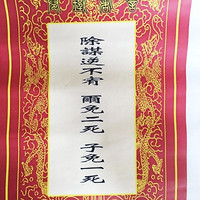 除謀逆不宥　爾免二死　子免一死